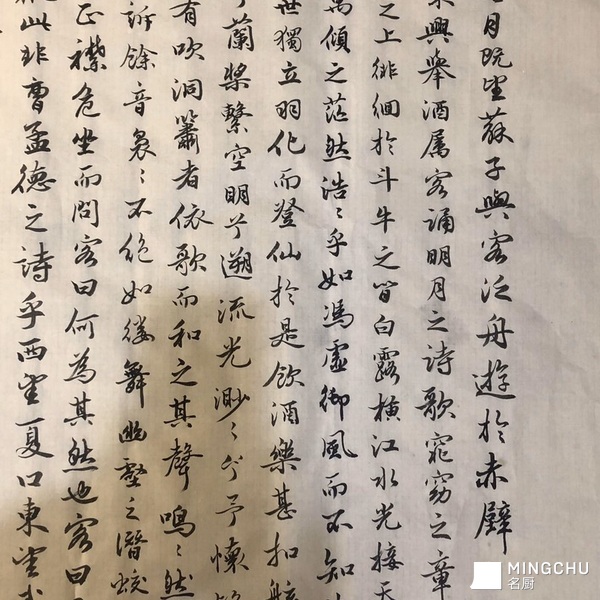 月既望蘇子與客泛舟遊於赤壁
興舉酒属客誦明月之詩歌窕窈之章
之上徘徊於斗牛之間白露橫江水光接天
萬傾之茫然浩〻乎如馮虛御風而不知
世獨立羽化而登仙於是飲酒樂甚扣舷
蘭槳擊空明兮遡流光渺〻兮予懷
有吹洞簫者依歌而和之其聲鳴〻然
訴餘音裊〻不絕如縷舞幽壑之潛蛟
正襟危坐而問客曰何為其然也客曰
此非曹孟德之詩乎西望夏口東望
MINGCHU
名厨